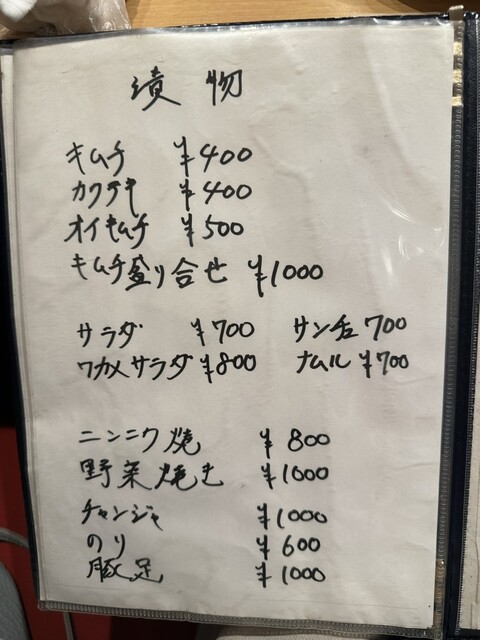 漬物
キムチ ¥400
カクテキ ¥400
オイキムチ ¥500
キムチ盛り合せ ¥1000
サラダ ¥700 サンチュ 700
ワカメサラダ ¥800 ナムル ¥700
ニンニク焼 ¥800
野菜焼き ¥1000
チャンジャ ¥1000
のり ¥600
豚足 ¥1000